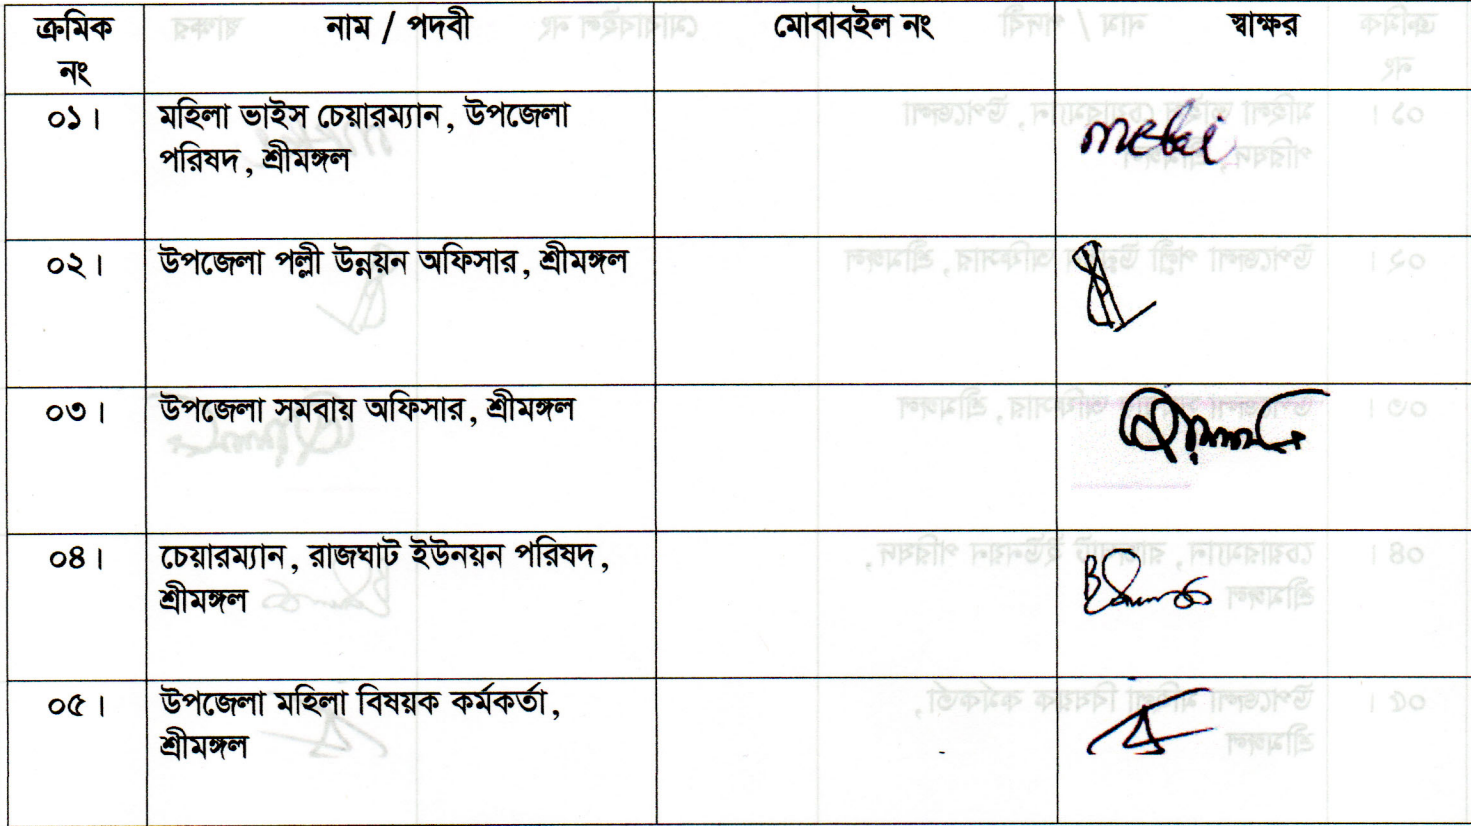 ক্রমিক নং	নাম / পদবী	মোবাবইল নং	স্বাক্ষর
০১। মহিলা ভাইস চেয়ারম্যান, উপজেলা
পরিষদ, শ্রীমঙ্গল
০২। উপজেলা পল্লী উন্নয়ন অফিসার, শ্রীমঙ্গল
০৩। উপজেলা সমবায় অফিসার, শ্রীমঙ্গল
০৪। চেয়ারম্যান, রাজঘাট ইউনয়ন পরিষদ,
শ্রীমঙ্গল
০৫। উপজেলা মহিলা বিষয়ক কর্মকর্তা,
শ্রীমঙ্গল